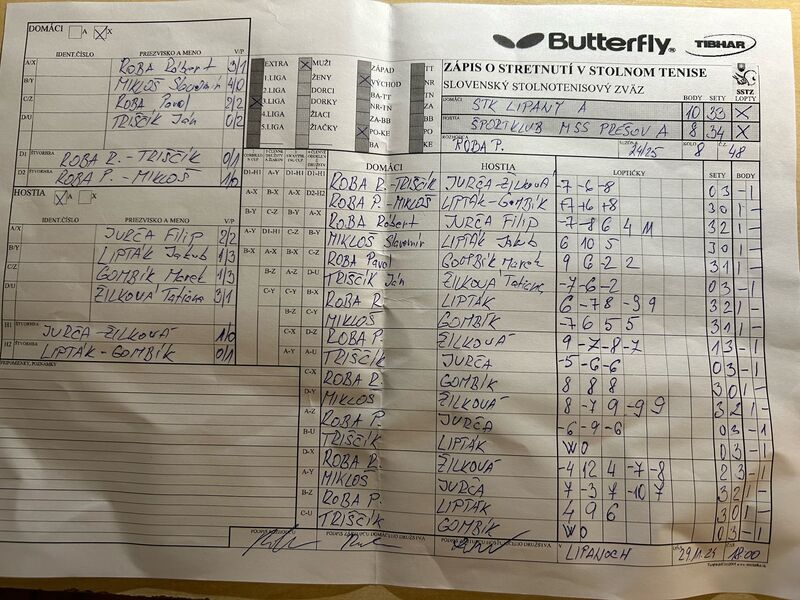 DOMÁCI A X
IDENT.ČÍSLO PRIEZVISKO A MENO V/P
A/X ROBA Róbert 3/1
B/Y MIKLOŠ Slavomír 4/0
C/Z ROBA Pavol 2/2
D/U TRIŠČÍK Ján 0/2
D1 ŠTVORHRA ROBA R. - TRIŠČÍK 0/1
D2 ŠTVORHRA ROBA P. - MIKLOŠ 1/0
HOSTIA A X
IDENT.ČÍSLO PRIEZVISKO A MENO V/P
A/X JURČA FILIP 2/2
B/Y LIPTÁK Jakub 1/3
C/Z GOMBÍK Marek 1/3
D/U ŽILKOVÁ Tatiana 3/1
H1 ŠTVORHRA JURČA-ŽILKOVÁ 1/0
H2 ŠTVORHRA LIPTÁK-GOMBÍK 0/1
PRIPOMIENKY, POZNÁMKY
EXTRA X MUŽI ZÁPAD TT
1.LIGA ŽENY X VÝCHOD NR
2.LIGA DORCI BA-TT TN
X 3.LIGA DORKY NR-TN ZA
4.LIGA ŽIACI ZA-BB BB
5.LIGA ŽIAČKY X PO-KE PO
BA KE
Butterfly TIBHAR
ZÁPIS O STRETNUTÍ V STOLNOM TENISE
SLOVENSKÝ STOLNOTENISOVÝ ZVÄZ SSTZ
DOMÁCI STK LIPANY A BODY 10 SETY 33 LOPTY X
HOSTIA ŠPORTKLUB MŠŠ PREŠOV A 8 34 X
ROZHODCA ROBA P. 24/25 KOLO 8 48
DOMÁCI HOSTIA LOPTIČKY SETY BODY
ROBA R.-TRIŠČÍK JURČA-ŽILKOVÁ -7 -6 -8 0 3 - 1
ROBA P. - MIKLOŠ LIPTÁK-GOMBÍK +7 +6 +8 3 0 1 -
ROBA Róbert JURČA FILIP -7 -8 6 4 11 3 2 1 -
MIKLOŠ Slavomír LIPTÁK Jakub 6 10 5 3 0 1 -
ROBA Pavol GOMBÍK Marek 9 6 -2 2 3 1 1 -
TRIŠČÍK Ján ŽILKOVÁ Tatiana -7 -6 -2 0 3 - 1
ROBA R. LIPTÁK 6 -7 8 -9 9 3 2 1 -
MIKLOŠ GOMBÍK -7 6 5 5 3 1 1 -
ROBA P. ŽILKOVÁ 9 -7 -8 -7 1 3 - 1
TRIŠČÍK JURČA -5 -6 -6 0 3 - 1
C-X ROBA R. GOMBÍK 8 8 8 3 0 1 -
D-Y MIKLOŠ ŽILKOVÁ 8 -7 9 -9 9 3 2 1 -
A-Z ROBA P. JURČA -6 -9 -6 0 3 - 1
B-U TRIŠČÍK LIPTÁK WO 0 3 - 1
D-X ROBA R. ŽILKOVÁ -4 12 4 -7 -8 2 3 - 1
A-Y MIKLOŠ JURČA 7 -3 7 -10 7 3 2 1 -
B-Z ROBA P. LIPTÁK 4 9 6 3 0 1 -
C-U TRIŠČÍK GOMBÍK WO 0 3 - 1
PODPIS ROZHODCU PODPIS ZÁSTUPCU DOMÁCEHO DRUŽSTVA PODPIS ZÁSTUPCU HOSŤUJÚCEHO DRUŽSTVA V LIPANOCH 29.11.24 18:00